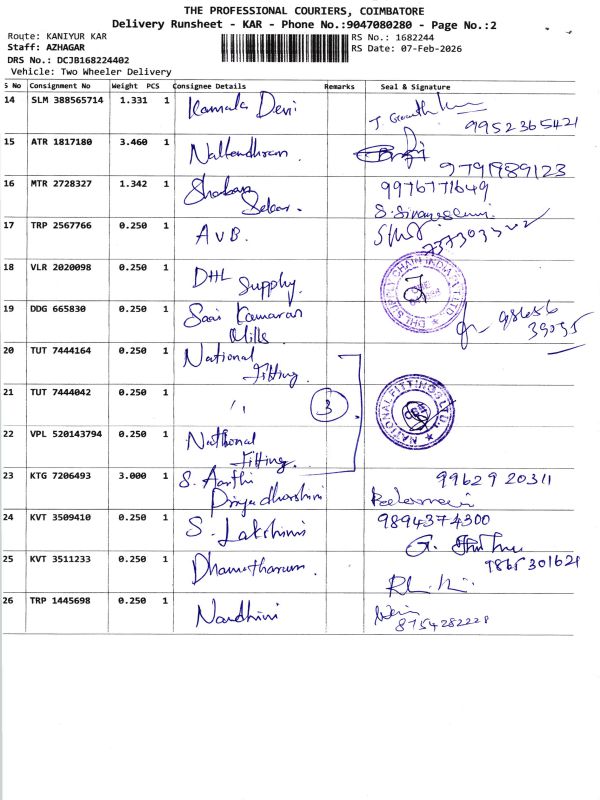 THE PROFESSIONAL COURIERS, COIMBATORE
Delivery Runsheet - KAR - Phone No.:9047080280 - Page No.:2
Route: KANIYUR KAR
RS No.: 1682244
Staff: AZHAGAR
RS Date: 07-Feb-2026
DRS No.: DCJB168224402
Vehicle: Two Wheeler Delivery
S No Consignment No Weight PCS Consignee Details Remarks Seal & Signature
14 SLM 388565714 1.331 1 Kamala Devi
9952365421
15 ATR 1817180 3.460 1
9791989123
16 MTR 2728327 1.342 1
9976771649
17 TRP 2567766 0.250 1 AVB.
18 VLR 2020098 0.250 1 DHL
Supply.
DHL SUPPLY CHAIN INDIA
19 DDG 665830 0.250 1 Sai Kamaran
Mills
20 TUT 7444164 0.250 1 National
Fitting.
21 TUT 7444042 0.250 1 " 3
NATIONAL FITTINGS LTD.
22 VPL 520143794 0.250 1 National
Fitting.
23 KTG 7206493 3.000 1 S. Aarthi
Priyadharshini
99629 20311
24 KVT 3509410 0.250 1 S. Lakshmi
9894374300
25 KVT 3511233 0.250 1
9865301621
26 TRP 1445698 0.250 1 Nandhini
8754282228